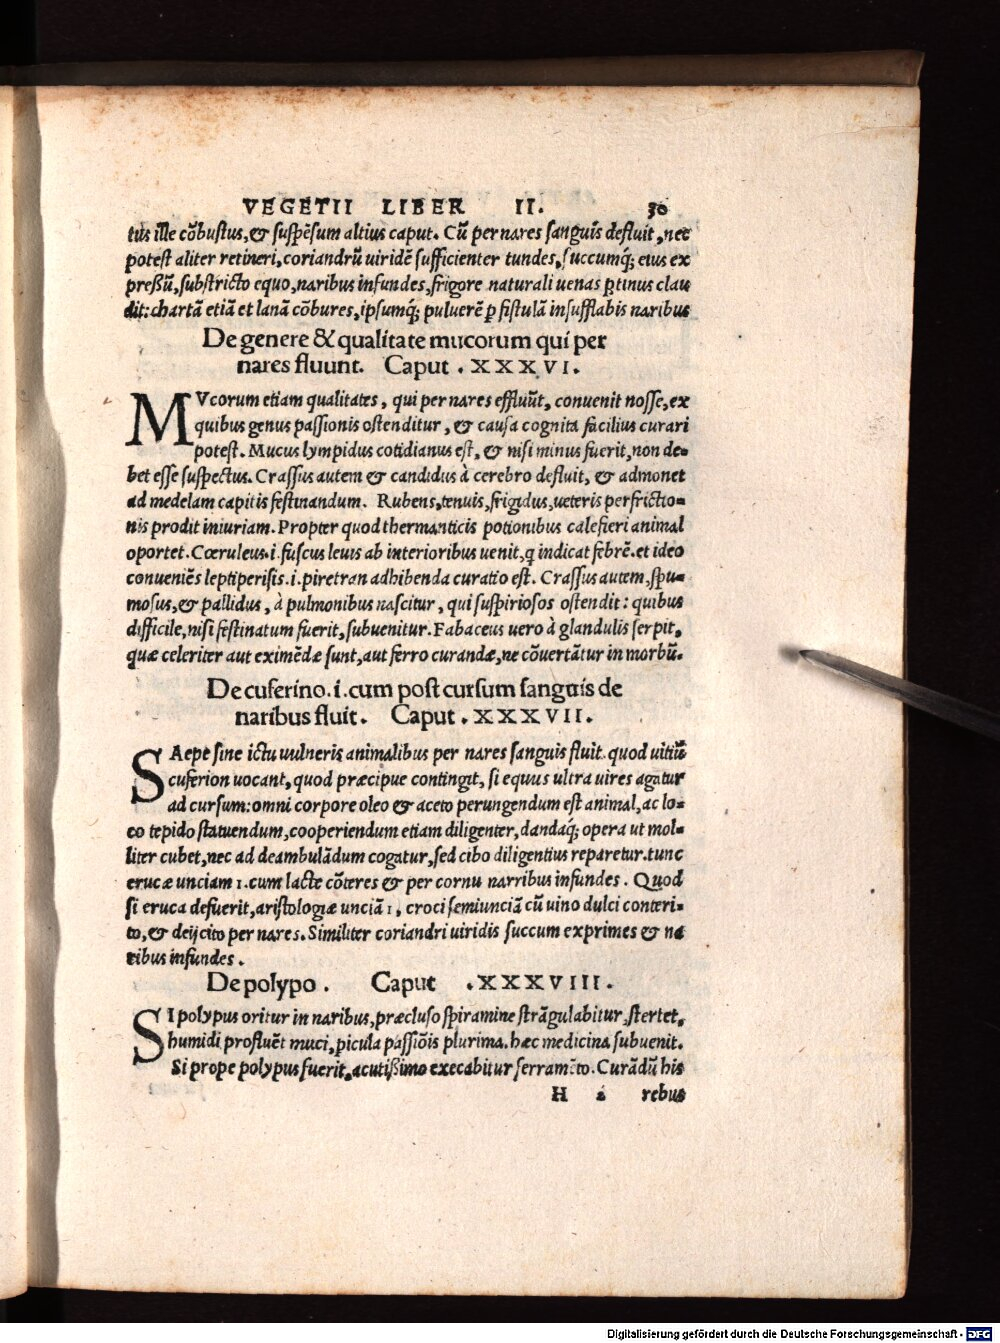 VEGETII LIBER II. 30
tus ille cõbustus,& suspẽsum altius caput. Cũ per nares sanguis defluit, nec
potest aliter retineri, coriandrũ uiridẽ sufficienter tundes, succumq; eius ex
preßũ, substricto equo, naribus infundes, frigore naturali uenas ꝓtinus clau
dit: chartã etiã et lanã cõbures, ipsumq; puluerẽ ꝑ fistulã insufflabis naribus
De genere & qualitate mucorum qui per
nares fluunt. Caput .XXXVI.
MVcorum etiam qualitates, qui per nares effluũt, conuenit nosse, ex
quibus genus passionis ostenditur, & causa cognita facilius curari
potest. Mucus lympidus cotidianus est, & nisi minus fuerit, non de-
bet esse suspectus. Crassus autem & candidus à cerebro defluit, & admonet
ad medelam capitis festinandum. Rubens, tenuis, frigidus, ueteris perfrictio-
nis prodit iniuriam. Propter quod thermanticis potionibus calefieri animal
oportet. Cœruleus.i.fuscus leuis ab interioribus uenit, q indicat febrẽ.et ideo
conueniẽs leptiperisis.i.piretran adhibenda curatio est. Crassus autem, spu-
mosus,& pallidus, à pulmonibus nascitur, qui suspiriosos ostendit: quibus
difficile, nisi festinatum fuerit, subuenitur. Fabaceus uero à glandulis serpit,
quæ celeriter aut eximẽdæ sunt, aut ferro curandæ, ne cõuertãtur in morbũ.
De cuferino.i.cum post cursum sanguis de
naribus fluit. Caput .XXXVII.
SAepe sine ictu uulneris animalibus per nares sanguis fluit. quod uitiũ
cuferion uocant, quod præcipue contingit, si equus ultra uires agatur
ad cursum: omni corpore oleo & aceto perungendum est animal, ac lo-
co tepido statuendum, cooperiendum etiam diligenter, dandaq; opera ut mol-
liter cubet, nec ad deambulãdum cogatur, sed cibo diligentius reparetur. tunc
erucæ unciam 1. cum lacte cõteres & per cornu narribus infundes. Quod
si eruca defuerit, aristologiæ unciã 1, croci semiunciã cũ uino dulci conteri-
to,& deijcito per nares. Similiter coriandri uiridis succum exprimes & na
ribus infundes.
De polypo. Caput .XXXVIII.
SI polypus oritur in naribus, præcluso spiramine strãgulabitur, stertet,
humidi profluẽt muci, picula passiõis plurima. hæc medicina subuenit.
Si prope polypus fuerit, acutißimo execabitur ferramẽto. Curãdũ his
H 2 rebus
Digitalisierung gefördert durch die Deutsche Forschungsgemeinschaft - DFG